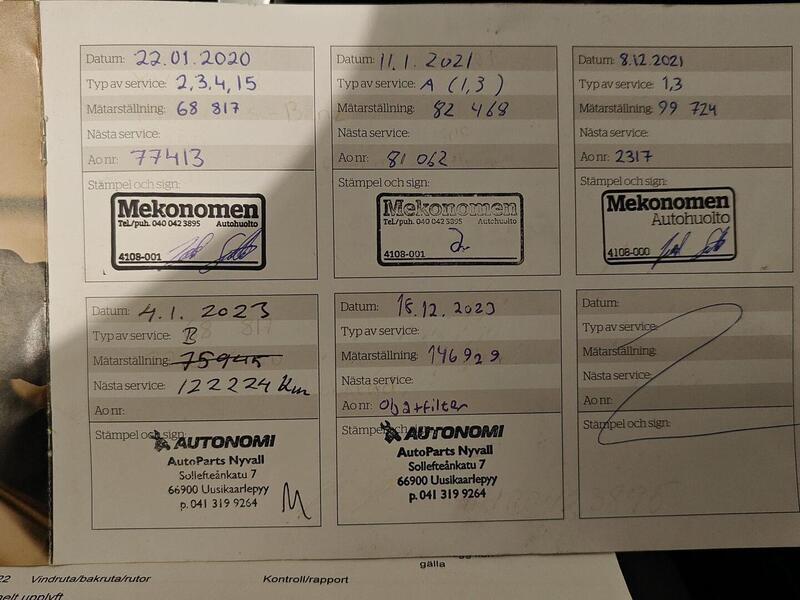 Datum: 22.01.2020
Typ av service: 2,3,4,15
Mätarställning: 68 817
Nästa service:
Ao nr: 77413
Stämpel och sign:
Mekonomen
Tel./puh. 040 042 3895 Autohuolto
4108-001
Datum: 11.1.2021
Typ av service: A (1,3)
Mätarställning: 82 468
Nästa service:
Ao nr: 81 062
Stämpel och sign:
Mekonomen
Tel./puh. 040 042 3895 Autohuolto
4108-001
Datum: 8.12.2021
Typ av service: 1,3
Mätarställning: 99 724
Nästa service:
Ao nr: 2317
Stämpel och sign:
Mekonomen
Autohuolto
4108-000
Datum: 4.1.2023
Typ av service: B
Mätarställning: 75945
Nästa service: 122224 km
Ao nr:
Stämpel och sign:
AUTONOMI
AutoParts Nyvall
Sollefteånkatu 7
66900 Uusikaarlepyy
p. 041 319 9264
Datum: 18.12.2023
Typ av service:
Mätarställning: 146929
Nästa service:
Ao nr: Olj+filter
Stämpel och sign:
AUTONOMI
AutoParts Nyvall
Sollefteånkatu 7
66900 Uusikaarlepyy
p. 041 319 9264
Datum:
Typ av service:
Mätarställning:
Nästa service:
Ao nr:
Stämpel och sign:
gälla
22 Vindruta/bakruta/rutor Kontroll/rapport
elt upplyft